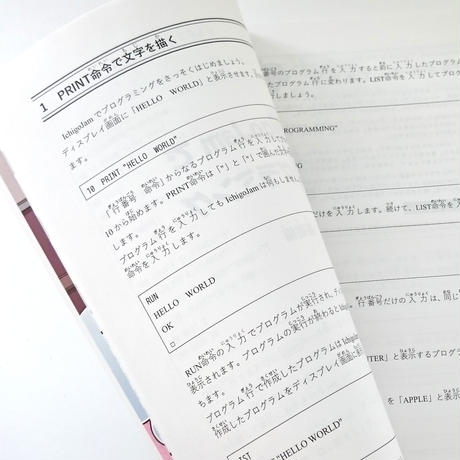 1 PRINT命令で文字を描く
IchigoJamでプログラミングをさっそくはじめましょう。
ディスプレイ画面に「HELLO WORLD」と表示させます。
ます。
10 PRINT "HELLO WORLD"
「行番号 命令」からなるプログラム行を入力して
10から始めます。PRINT命令は「"」と「"」で囲んだ
します。
プログラム行を入力してもIchigoJamは何もしません
命令を入力します。
RUN
HELLO WORLD
OK
□
RUN命令の入力でプログラムが実行され、ディ
表示されます。プログラムの実行が終わるとIchigo
ちます。
プログラム行で作成したプログラムはIchigo
作成したプログラムをディスプレイ画面に表
IST
"HELLO WORLD"
番号のプログラム行を入力すると前に入力したプログラム
行に変わります。LIST命令を入力してプログラ
ROGRAMMING"
だけを入力します。続けて、LIST命令を入
行番号だけの入力は、同じ
TER」と表示するプログラ
を「APPLE」と表